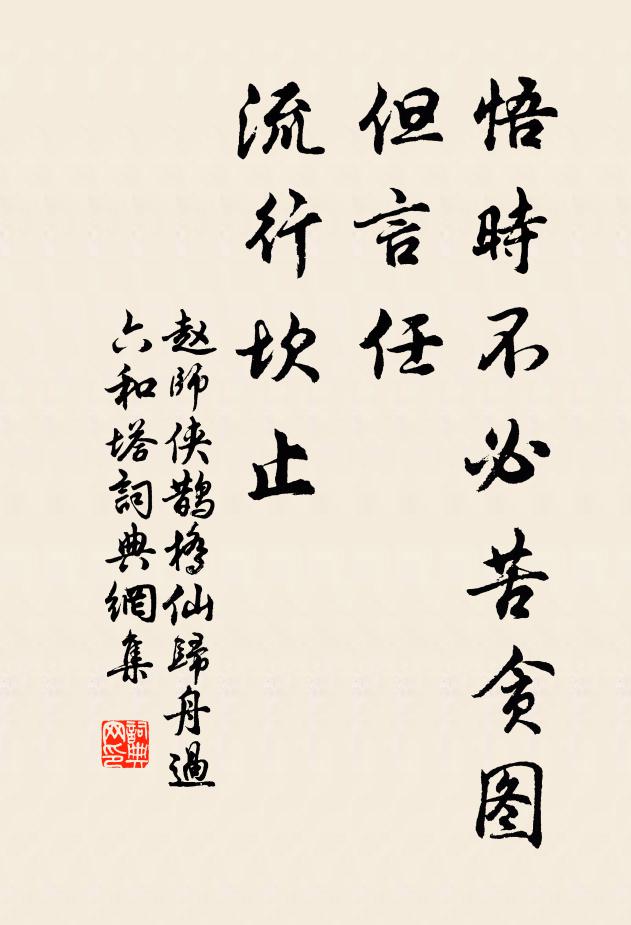 悟時不必苦贪图
但言任
流行坎止
赵師侠鵲橋仙歸舟過
六和塔詞典網集
詞典
网印